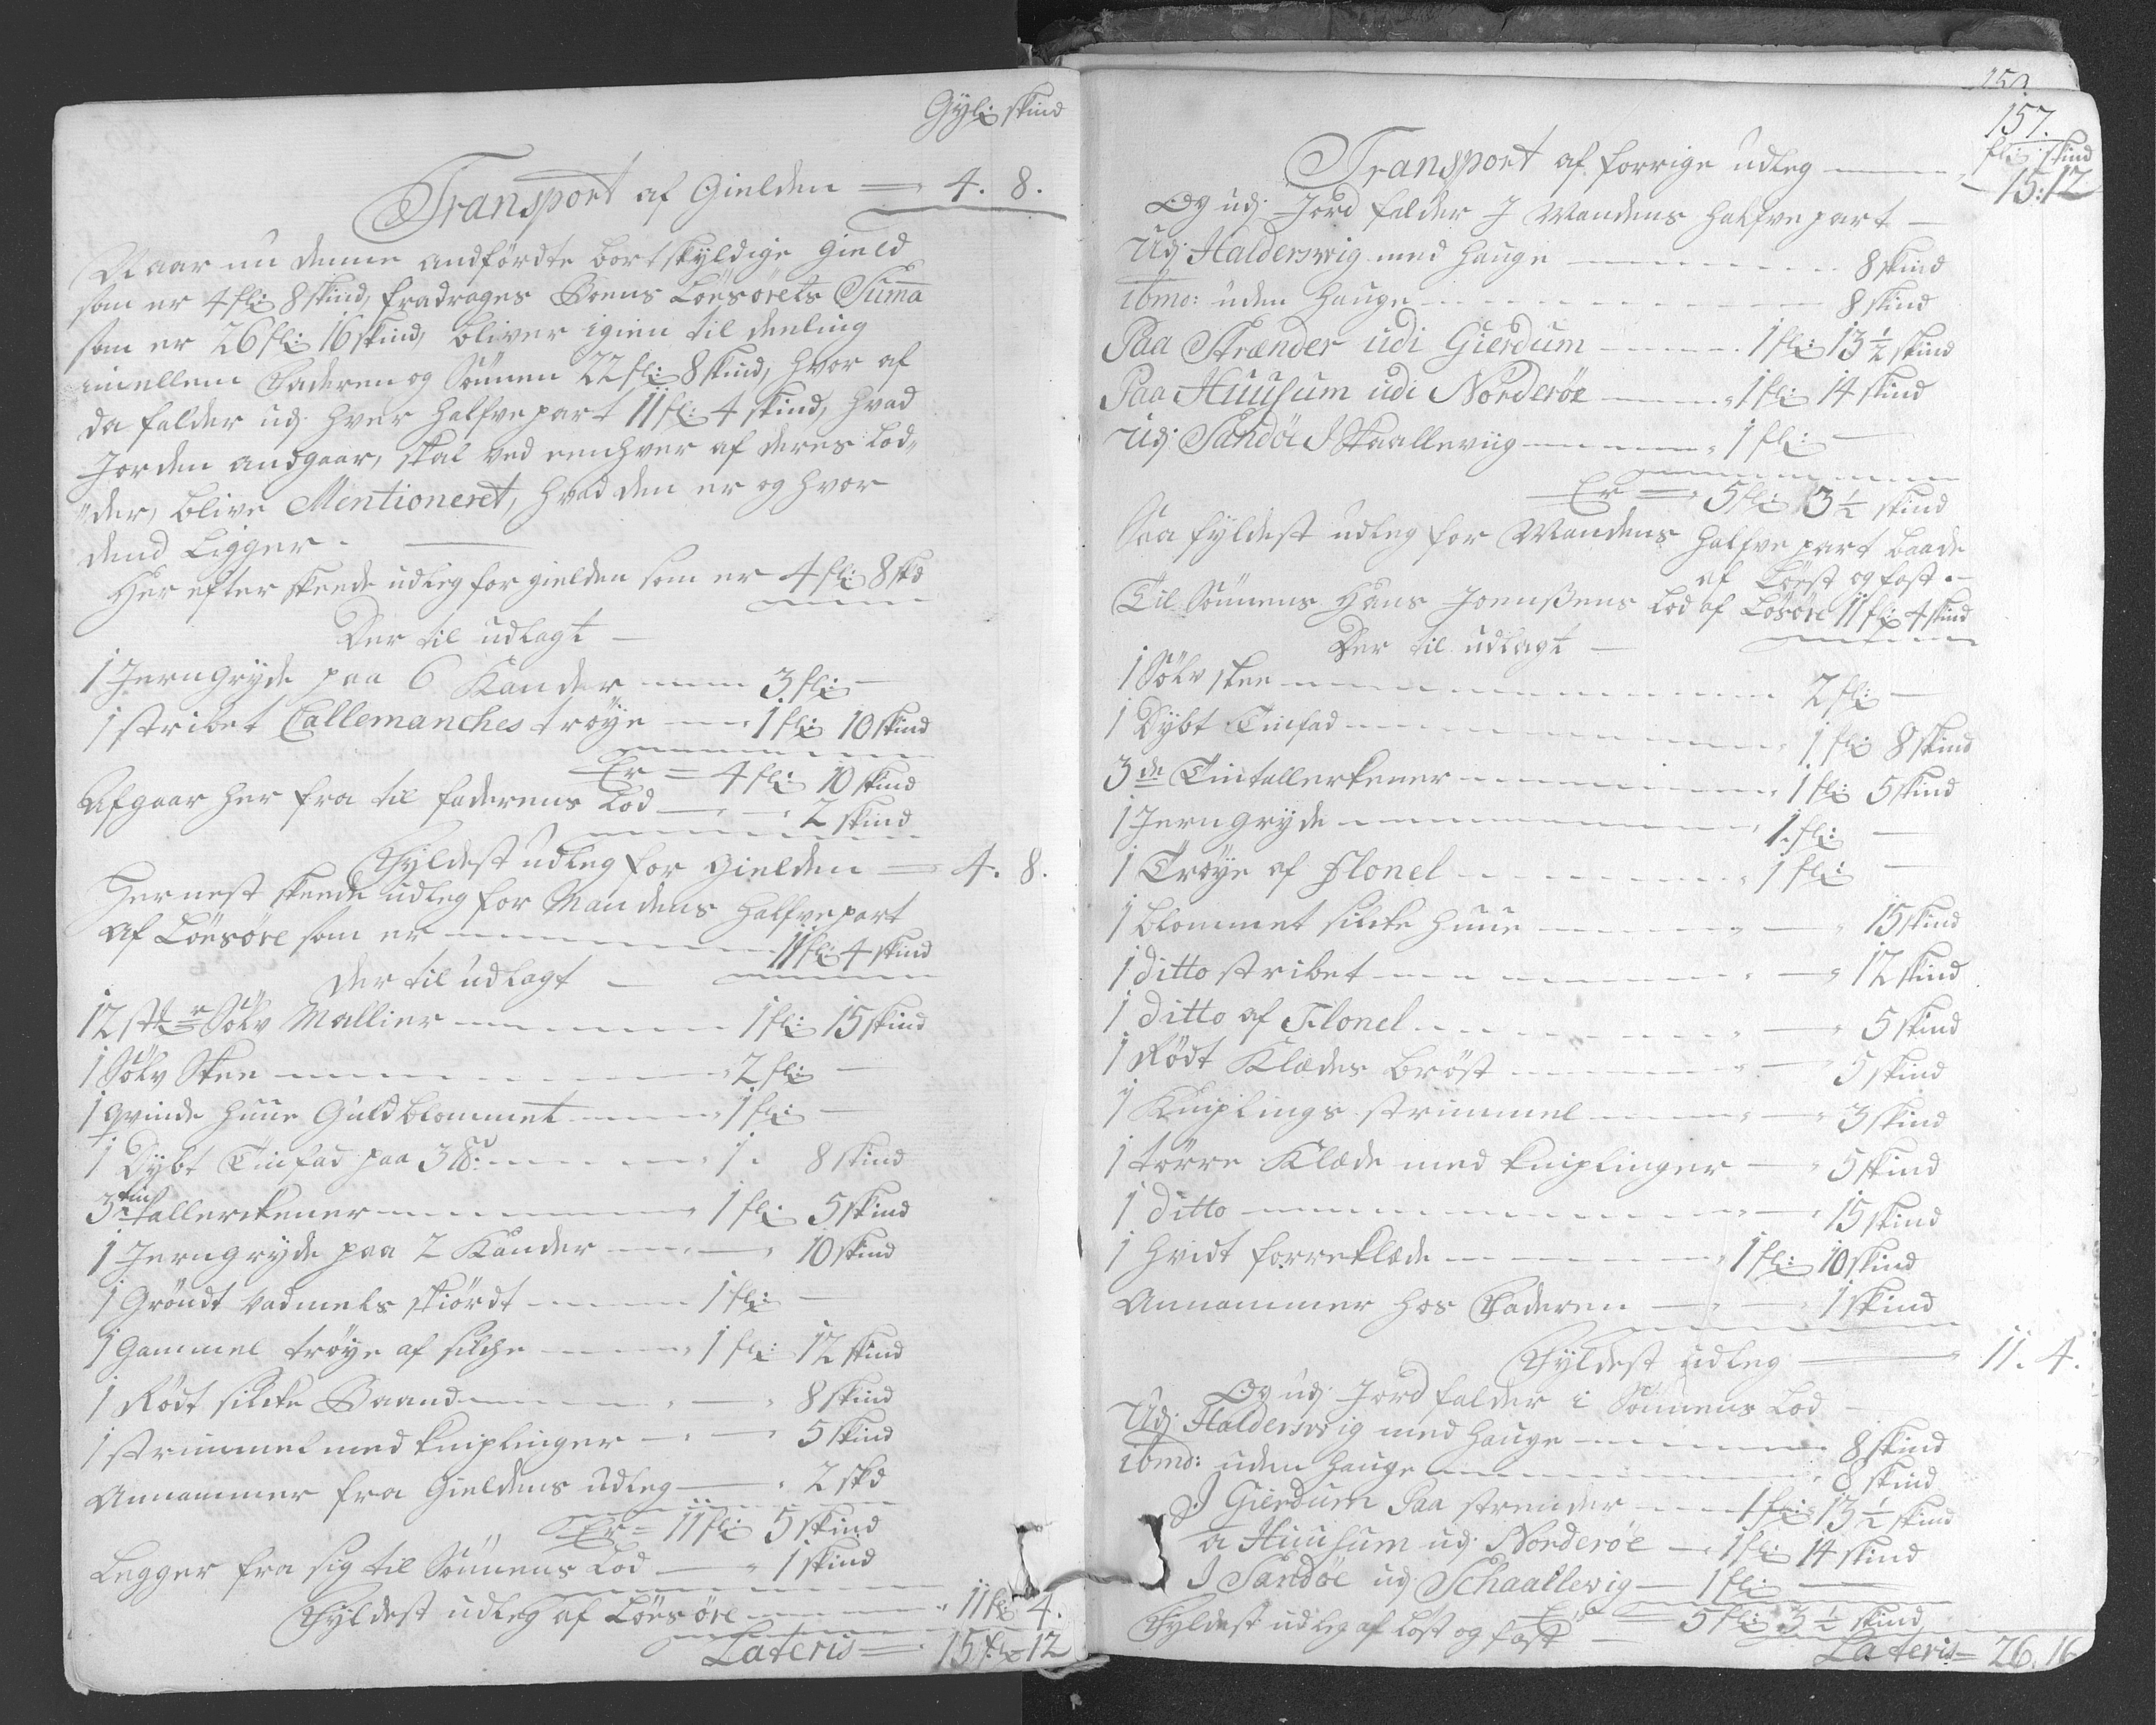 Gyl: skind
Transport af Gielden = 4. 8.
Naar nu denne andførdte bortskyldige gield
som er 4 fl: 8 skind, fradrages Boens Løesørets Suma
som er 26 fl: 16 skind, bliver igien til deeling
imellem Faderen og Sønnen 22 fl: 8 skind, hvor af
da falder ud: hver halfvepart 11 fl: 4 skind, hvad
Jorden andgaar, skal ved eenhver af deres Lod„
„der, blive Mentioneret, hvad den er og hvor
dend Ligger.
Her efter skeede udleg for gielden som er 4 fl: 8 skd
Der til udlagt
1 Jerngryde paa 6 Kander 3 fl:
1 stribet Callemanches trøye 1 fl: 10 skind
Er = 4 fl: 10 skind
Afgaar her fra til faderens Lod 2 skind
Fyldest udleg for gielden = 4. 8.
Hernest skeede udleg for Mandens halfvepart
af Løesøre som er 11 fl: 4 skind
der til udlagt
12 stkr Sølv Mallier 1 fl: 15 skind
1 Sølv Skee 2 fl:
1 qvinde huue Guldblommet 1 fl:
1 Dybt Tinfad paa 3 ℔: 1. 8 skind
3de tin tallerckener 1 fl: 5 skind
1 Jerngryde paa 2 Kander 10 skind
1 Grøndt vadmels skiørdt 1 fl:
1 Gammel trøye af silche 1 fl: 12 skind
1 Rødt silcke Baand 8 skind
1 strimmel med kniplinger 5 skind
Annammer fra Gieldens Udleg 2 skd
Er = 11 fl: 5 skind
Legger fra sig til Sønnens Lod 1 skind
Fyldest udleg af Løesøre 11 fl: 4.
Lateris = 15 fl: 12
157.
fl: skind
Transport af forrige udleg 15: 12
Og udj Jord falder J Mandens halfvepart
Udj Halderswig med hauge 8 skind
ibmd: uden hauge 8 skind
Paa Strænder udi Gierdum 1 fl: 13 1/2 skind
Paa Huusum udi Norderøe 1 fl: 14 skind
Udj Sandøe J Skaalleviig 1 fl:
Er = 5 fl: 13 1/2 skind
Saa fyldest udleg for Mandens halfve part baade
af Løest og fast.
Til Sønnens Hans Joenßens Lod af Løsøre 11 fl: 4 skind
Der til udlagt
1 Sølv skee 2 fl:
1 Dybt Tinfad 1 fl: 8 skind
3de Tintallerkener 1 fl: 5 skind
1 Jerngryde 1. fl:
1 Trøye af Flonel 1 fl:
1 blommet silcke huue 15 skind
1 ditto stribet 12 skind
1 ditto af Flonel 5 skind
1 Rødt Klædes brøst 5 skind
1 Kniplings strimmel 3 skind
1 tørre Klæde med kniplinger 5 skind
1 ditto 15 skind
1 hvidt forreklæde 1 fl: 10 skind
Annammer hos Faderen 1 skind
Fyldest udleg 11. 4.
Og udj Jord falder i Sønnens Lod
Udj Halderswig med hauge 8 skind
ibmd: uden hauge 8 skind
J Gierdum Paa strender 1 fl: 13 1/2 skind
a Huusum udj Norderøe 1 fl: 14 skind
J Sandøe udj Schaallevig 1 fl:
Er = 5 fl: 3 1/2 skind
Fyldest udleg af løst og fast
Lateris = 26. 16